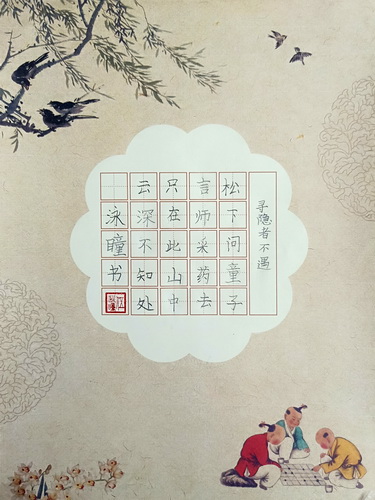 寻隐者不遇
松下问童子
言师采药去
只在此山中
云深不知处
泳瞳书